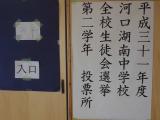 平成三十一年度
河口湖南中学校
全校生徒会選挙
第二学年 投票所
入口